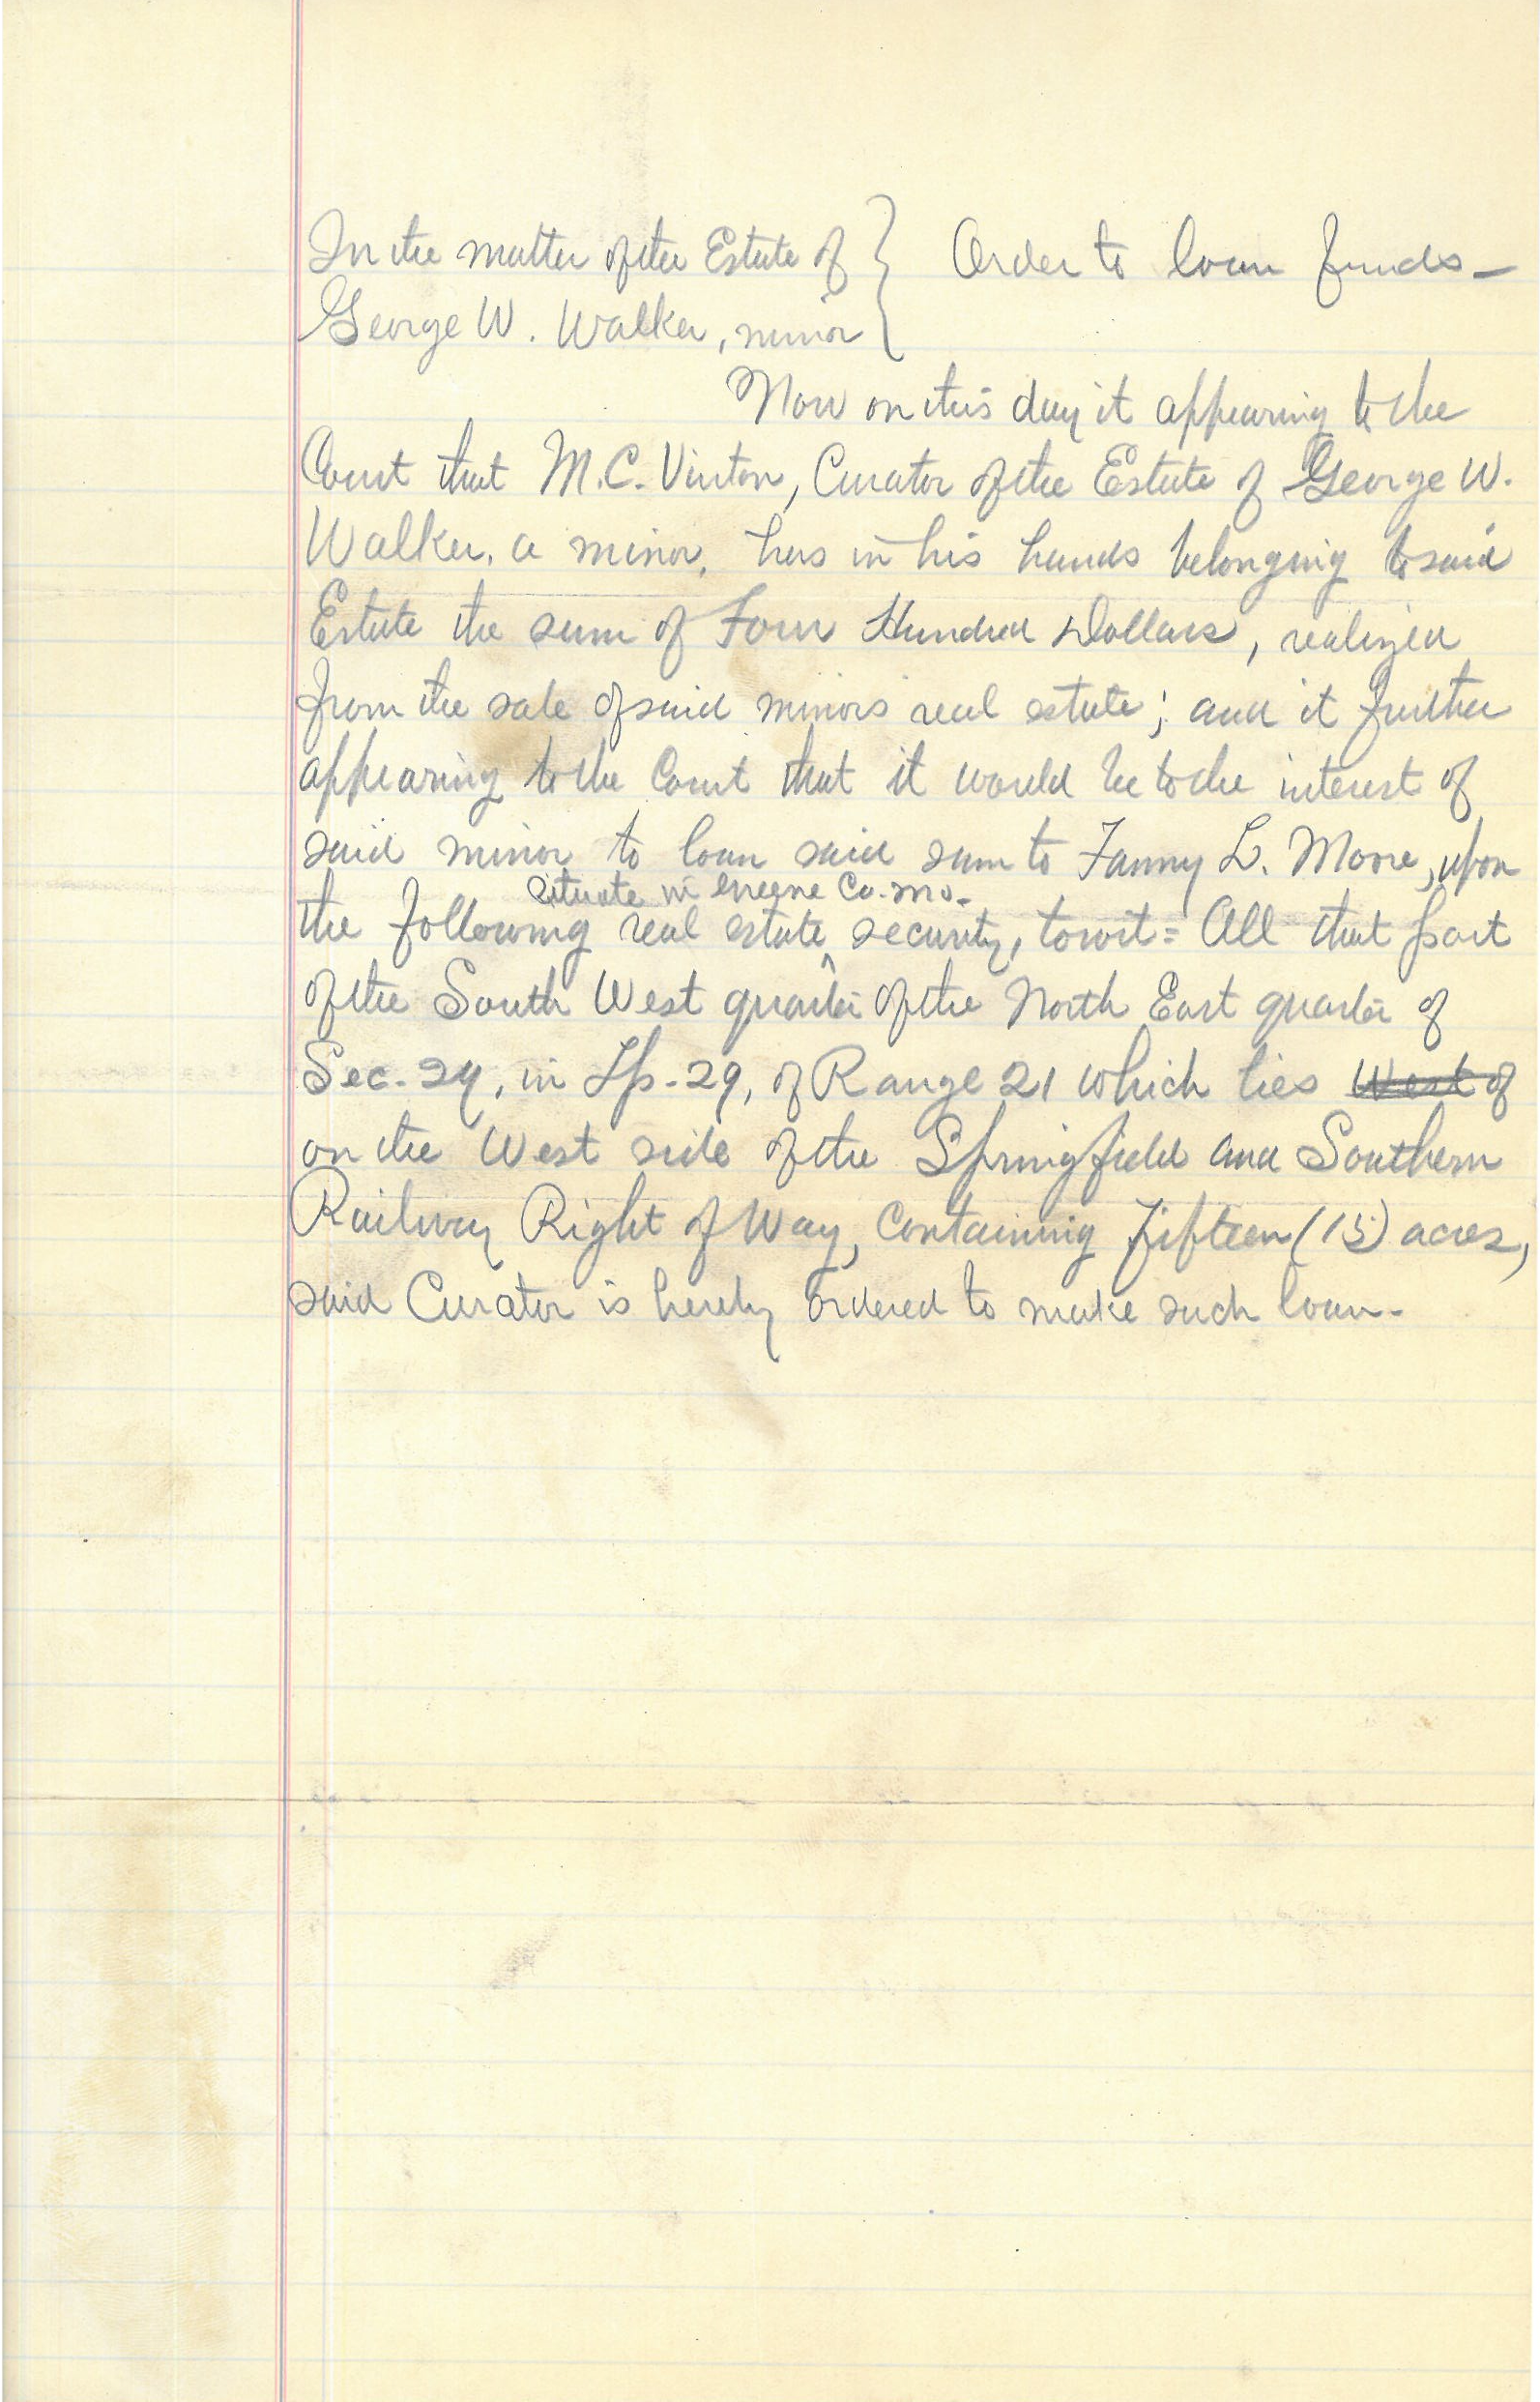 In the matter of the Estate of } Order to loan funds—
George W. Walker, minor
Now on this day it appearing to the
Court that M.C. Vinton, Curator of the Estate of George W.
Walker, a minor, has in his hands belonging to said
Estate the sum of Four Hundred Dollars, realized
from the sale of said minors real estate; and it further
appearing to the Court that it would be to the interest of
said minor to loan said sum to Fanny L. Moore, upon
situate in Greene Co. Mo.
the following real estate ^ security, towit= All that part
of the South West quarter of the North East quarter of
Sec. 24, in Tp. 29, of Range 21 which lies West of
on the West side of the Springfield and Southern
Railway Right of Way, Containing fifteen (15) acres,
said Curator is hereby ordered to make such loan.